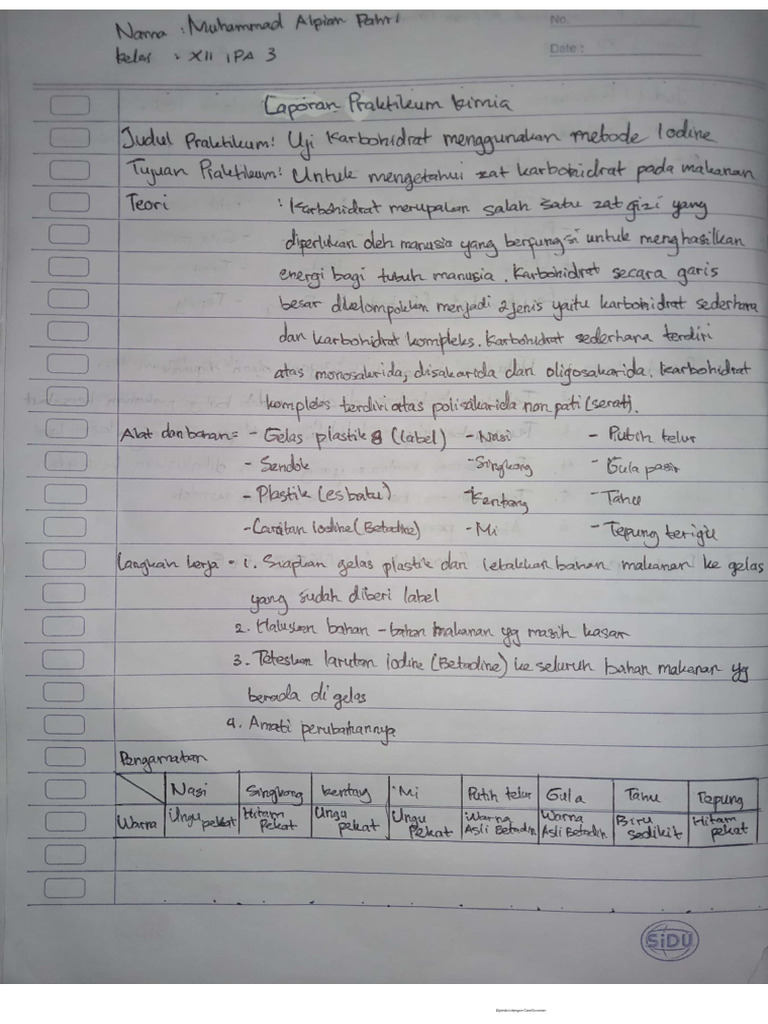 Nama : Muhammad Alpian Pahri
No.
kelas : XII IPA 3
Date :
Laporan Praktikum kimia
Judul Praktikum : Uji Karbohidrat menggunakan metode Iodine
Tujuan Praktikum : Untuk mengetahui zat karbohidrat pada makanan
Teori : Karbohidrat merupakan salah satu zat gizi yang
diperlukan oleh manusia yang berpungsi untuk menghasilkan
energi bagi tubuh manusia. Karbohidrat secara garis
besar dikelompokkan menjadi 2 jenis yaitu karbohidrat sederhana
dan karbohidrat kompleks. Karbohidrat sederhana terdiri
atas monosakarida, disakarida dan oligosakarida. Karbohidrat
kompleks terdiri atas polisakarida non pati (serat).
Alat dan bahan = - Gelas plastik 8 (label) - Nasi - Putih telur
- Sendok - Singkong - Gula pasir
- Plastik (es batu) - Kentang - Tahu
- Larutan Iodine (Betadine) - Mi - Tepung terigu
Langkah kerja = 1. Siapkan gelas plastik dan letakkan bahan makanan ke gelas
yang sudah diberi label
2. Haluskan bahan - bahan makanan yg masih kasar
3. Teteskan larutan iodine (Betadine) ke seluruh bahan makanan yg
berada di gelas
4. Amati perubahannya
Pengamatan
Nasi Singkong kentang Mi Putih telur Gula Tahu Tepung
Warna Ungu pekat Hitam Pekat Ungu pekat Ungu Pekat Warna Asli Betadin Warna Asli Betadin Biru sedikit Hitam pekat
SiDU
Dipindai dengan CamScanner